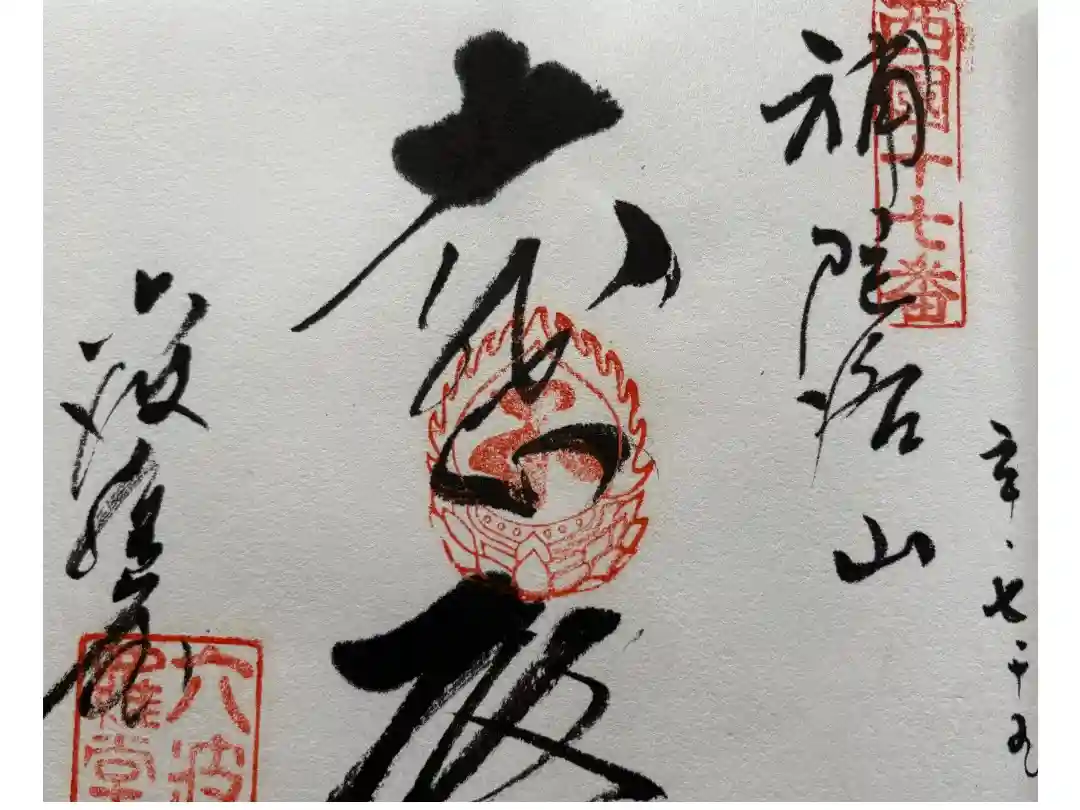 西國十七番
補陀洛山
七・十九
大悲殿
六波羅蜜寺
六波
羅堂